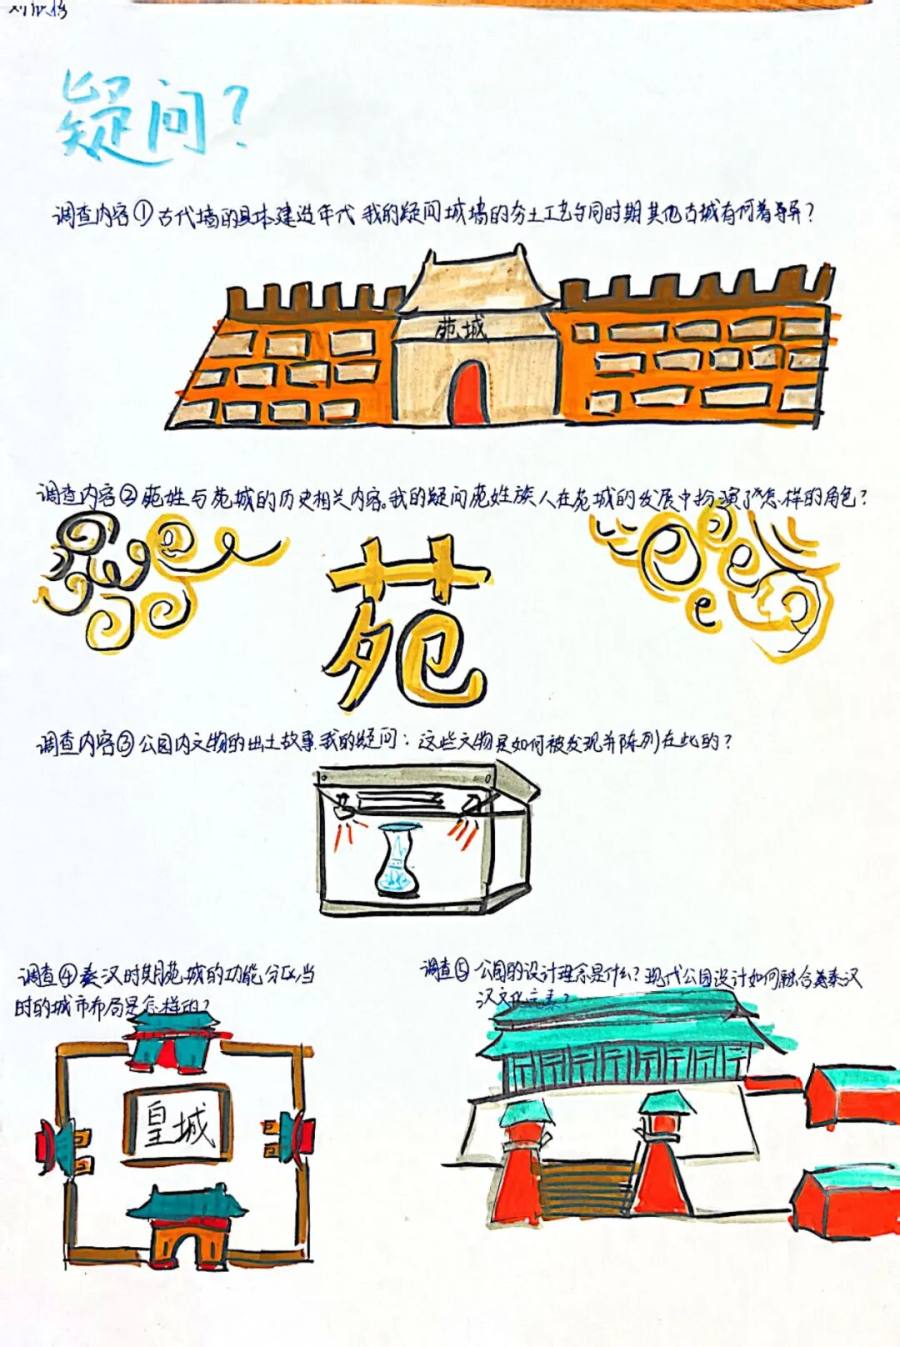 疑问?
调查内容①古代墙的具体建造年代 我的疑问城墙的夯土工艺与同时期其他古城有何着异?
苑城
调查内容②苑姓与苑城的历史相关内容。我的疑问苑姓族人在苑城的发展中扮演了怎样的角色?
苑
调查内容③公园内文物的出土故事.我的疑问:这些文物是如何被发现并陈列在此的?
调查④秦汉时期苑城的功能分区,当
时的城市布局是怎样的?
皇城
调查⑤公园的设计理念是什么?现代公园设计如何融合秦汉
汉文化元素?